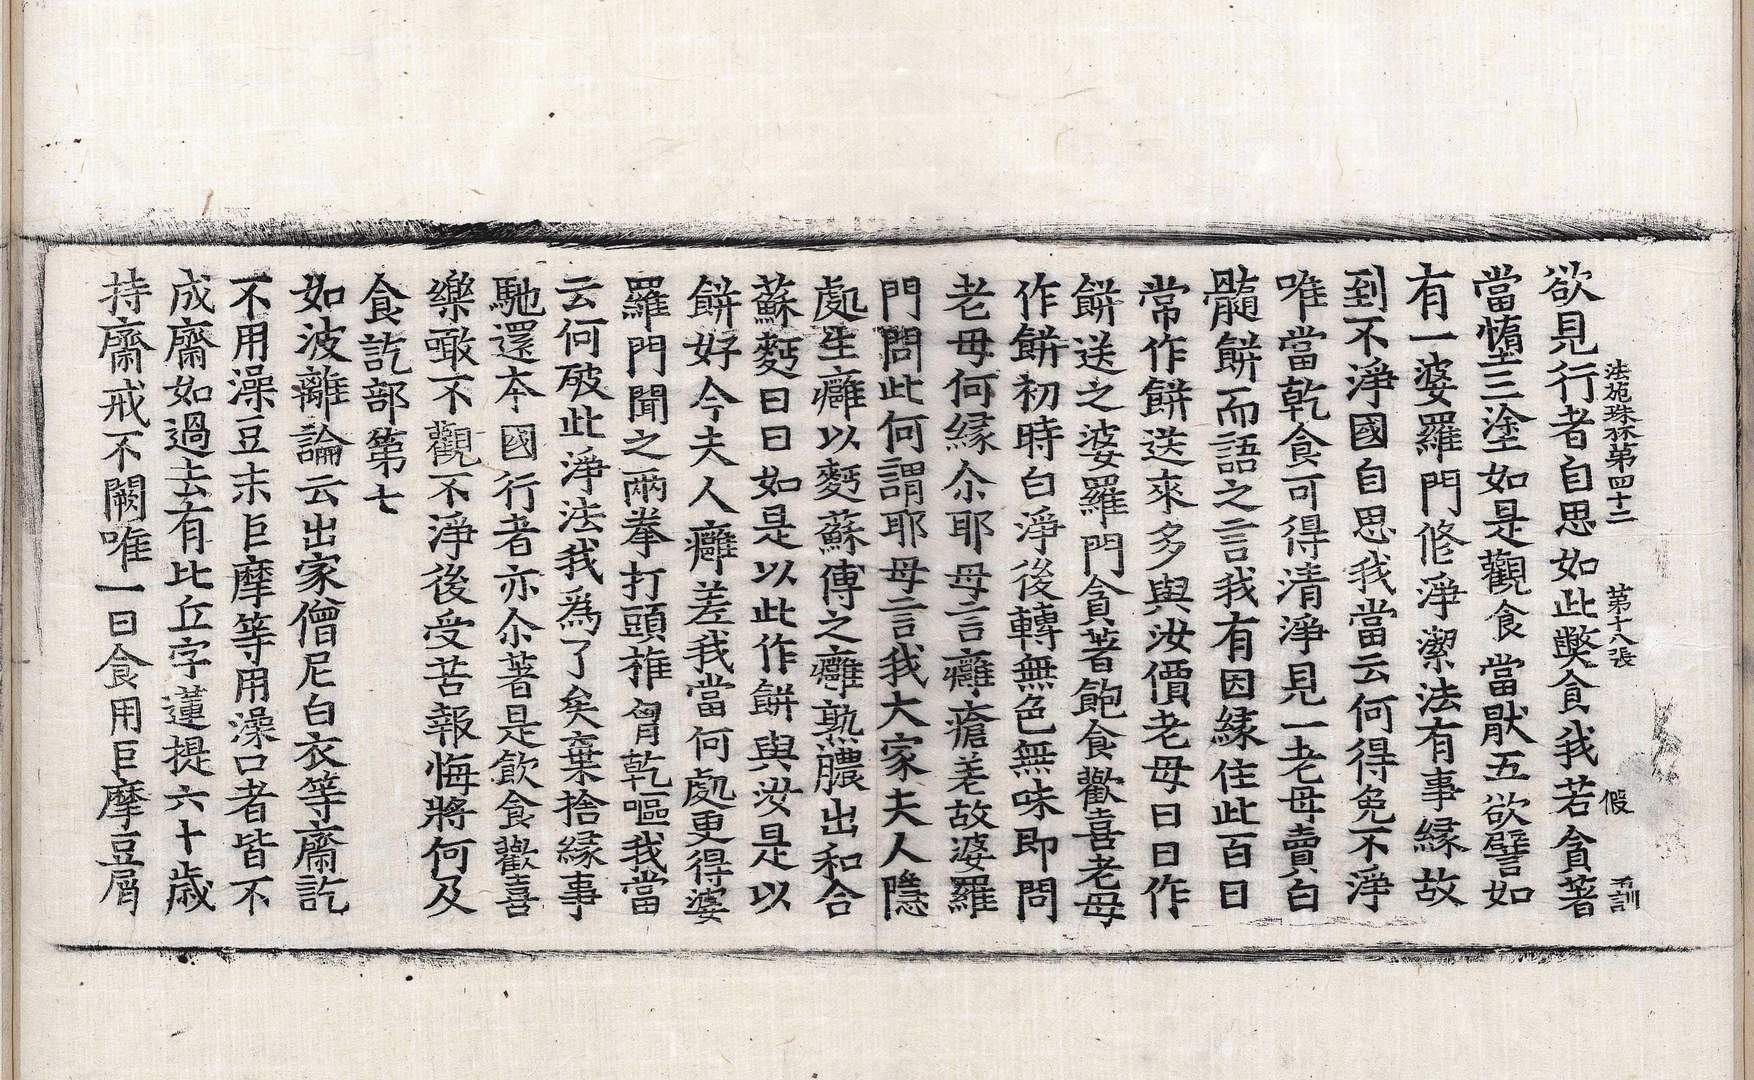 法苑珠林第四十二 第十八張 假 禾訓
欲見行者自思如此弊食我若貪著
當墮三塗如是觀食當猒五欲譬如
有一婆羅門修淨潔法有事緣故
到不淨國自思我當云何得免不淨
唯當乾食可得清淨見一老母賣白
髓餅而語之言我有因緣住此百日
常作餅送來多與汝價老母日日作
餅送之婆羅門貪著飽食歡喜老母
作餅初時白淨後轉無色無味即問
老母何緣尒耶母言癰瘡差故婆羅
門問此何謂耶母言我大家夫人隱
處生癰以麫蘇傅之癰熟膿出和合
蘇麫日日如是以此作餅與汝是以
餅好今夫人癰差我當何處更得婆
羅門聞之兩拳打頭搥胷乾嘔我當
云何破此淨法我爲了矣棄捨緣事
馳還本國行者亦尒著是飲食歡喜
樂噉不觀不淨後受苦報悔將何及
食訖部第七
如波離論云出家僧尼白衣等齋訖
不用澡豆末巨摩等用澡口者皆不
成齋如過去有比丘字蓮提六十歲
持齋戒不闕唯一日食用巨摩豆屑